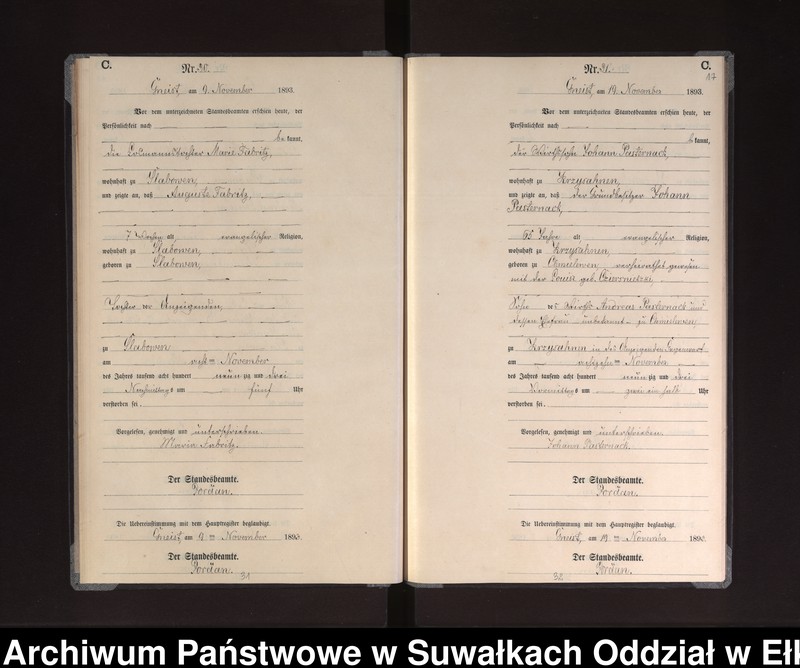 C.
Nr. 30.
Gneist, am 9. November 1893.
Vor dem unterzeichneten Standesbeamten erschien heute, der
Persönlichkeit nach
bekannt,
die Losmannstochter Marie Fabritz,
wohnhaft zu Slabowen,
und zeigte an, daß Auguste Fabritz,
7 Wochen alt evangelischer Religion,
wohnhaft zu Slabowen,
geboren zu Slabowen,
Tochter der Anzeigenden,
zu Slabowen
am November
des Jahres tausend acht hundert neunzig und drei
Nachmittags um fünf Uhr
verstorben sei.
Vorgelesen, genehmigt und unterschrieben.
Maria Fabritz.
Der Standesbeamte.
Jordan.
Die Uebereinstimmung mit dem Hauptregister beglaubigt.
Gneist, am 9ten November 1893.
Der Standesbeamte.
Jordan.
31
C.
17
Nr. 31.
Gneist, am 19. November 1893.
Vor dem unterzeichneten Standesbeamten erschien heute, der
Persönlichkeit nach
bekannt,
der Wirthssohn Johann Pasternack,
wohnhaft zu Krzysahnen,
und zeigte an, daß der Grundbesitzer Johann
Pasternack,
65 Jahre alt evangelischer Religion,
wohnhaft zu Krzysahnen,
geboren zu Chmielewen, verheirathet gewesen
mit der Louise geb.
Sohn des Wirths Andreas Pasternack und
dessen Ehefrau unbekannt zu Chmielewen,
zu Krzysahnen in des Anzeigenden Gegenwart
am achtzehnten November
des Jahres tausend acht hundert neunzig und drei
Vormittags um zwei ein halb Uhr
verstorben sei.
Vorgelesen, genehmigt und unterschrieben.
Johann Pasternack.
Der Standesbeamte.
Jordan.
Die Uebereinstimmung mit dem Hauptregister beglaubigt.
Gneist, am 19ten November 1893.
Der Standesbeamte.
Jordan.
32
Archiwum Państwowe w Suwałkach Oddział w Eł